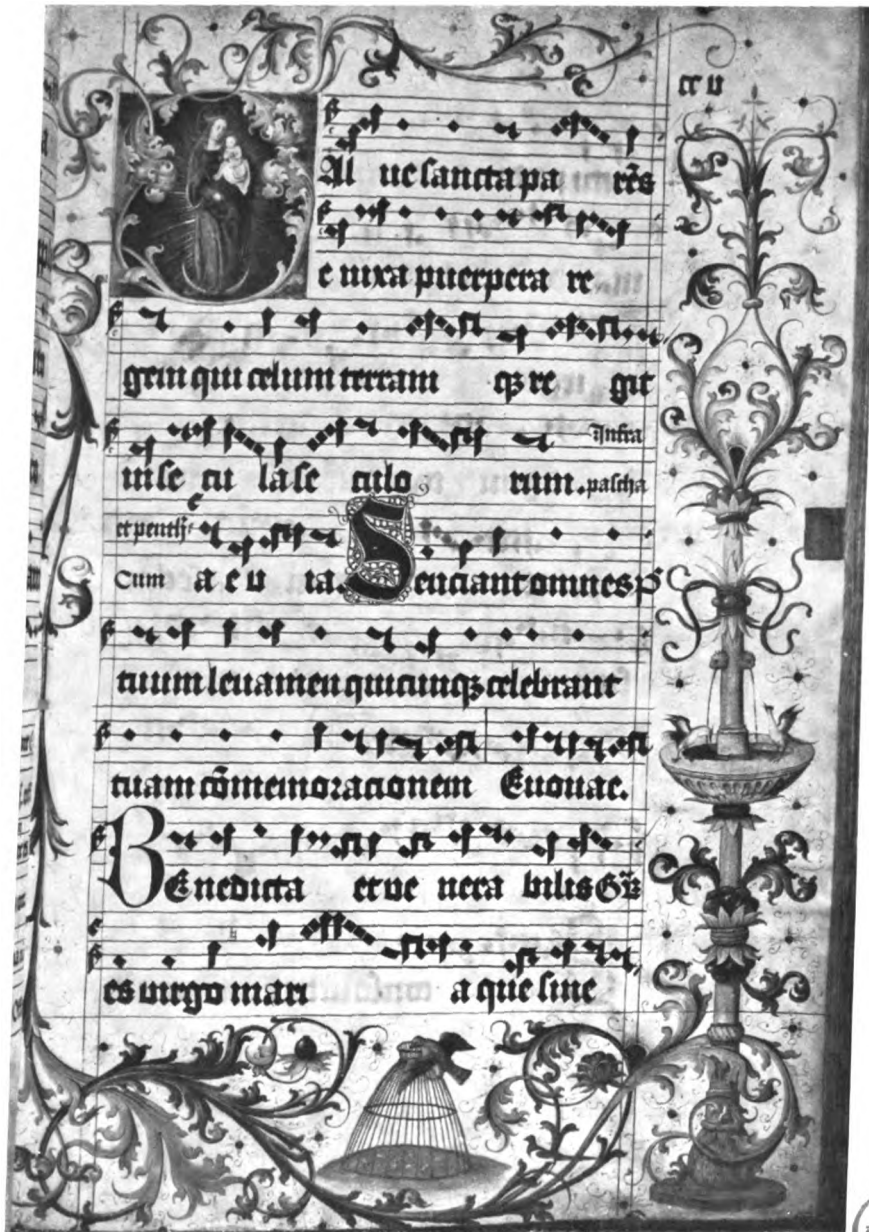 cv
Al ue sancta pa rēs
e nixa puerpera re
gem qui celum terram qȝ re git
in se cu la se culo rum. Infra pascha
et penth̄ cum a e u ia. Senciant omnes p̄
tuum leuamen quicunqȝ celebrant
tuam cōmemoracionem Euouae.
BEnedicta et ve nera bilis Gr̄
es virgo mari a que sine